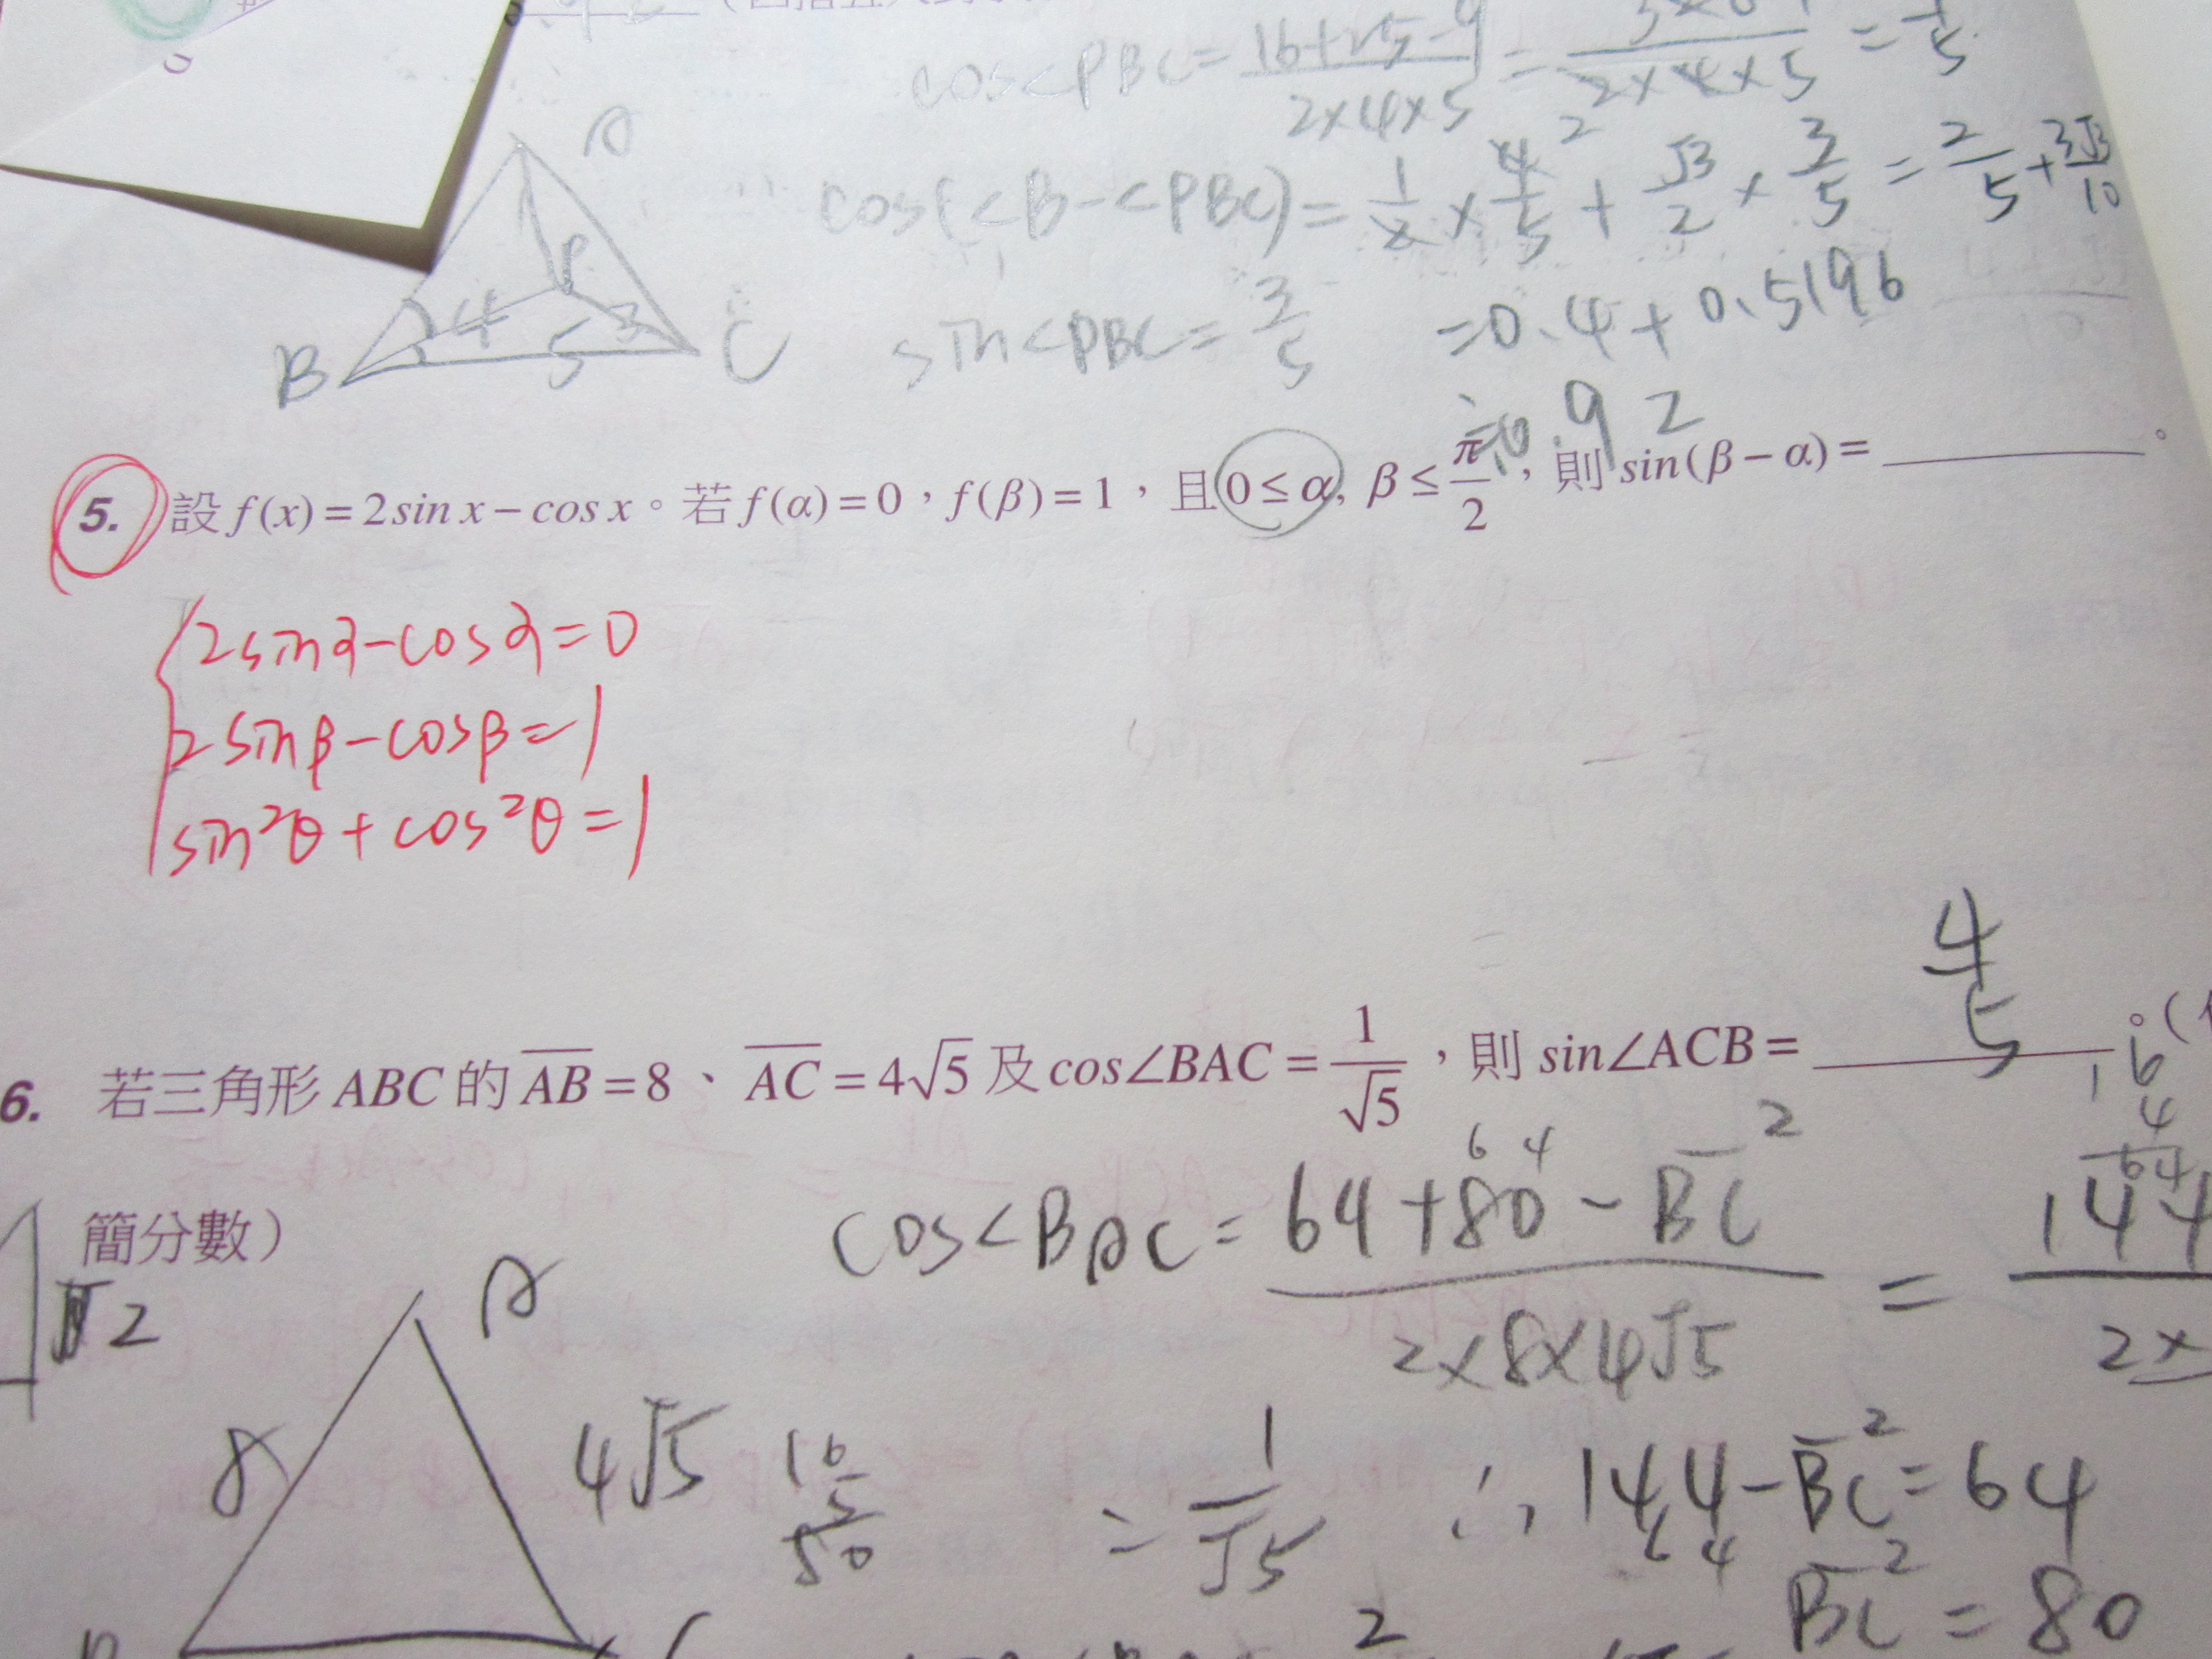 cos<PBC = 16+25-9 / 2×4×5 = / 2×4×5 = / 5
A
cos(<B-<PBC) = 1/2 × 4/5 + √3/2 × 3/5 = 2/5 + 3√3/10
P
4 3
B 5 C
sin<PBC = 3/5 = 0.4 + 0.5196
≒0.92
5. 設 f(x) = 2sin x − cos x。若 f(α) = 0,f(β) = 1,且 0 ≤ α, β ≤ π/2,則 sin(β − α) = ______。
2sinα-cosα=0
2sinβ-cosβ=1
sin²θ+cos²θ=1
4/5
6. 若三角形 ABC 的 AB = 8、AC = 4√5 及 cos∠BAC = 1/√5,則 sin∠ACB = ______。(
簡分數)
16
4
64
cos<BAC = 64+80-BC² / 2×8×4√5 = 144 / 2×
6 4
2
A
8 4√5
16
5
50
= 1/√5 ∴ 144-BC²=64
6 4
BC²=80
2